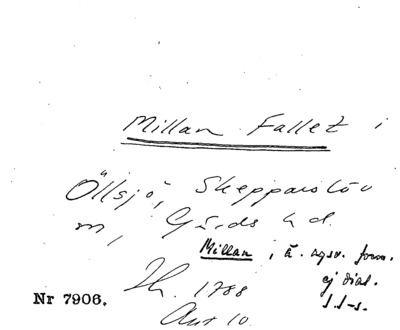 Millan Fallet i
Öllsjö, Skepparslöv
m, Gärds hd.
Millan, ä. nysv. form.
ej dial.
Nr 7906.
1788